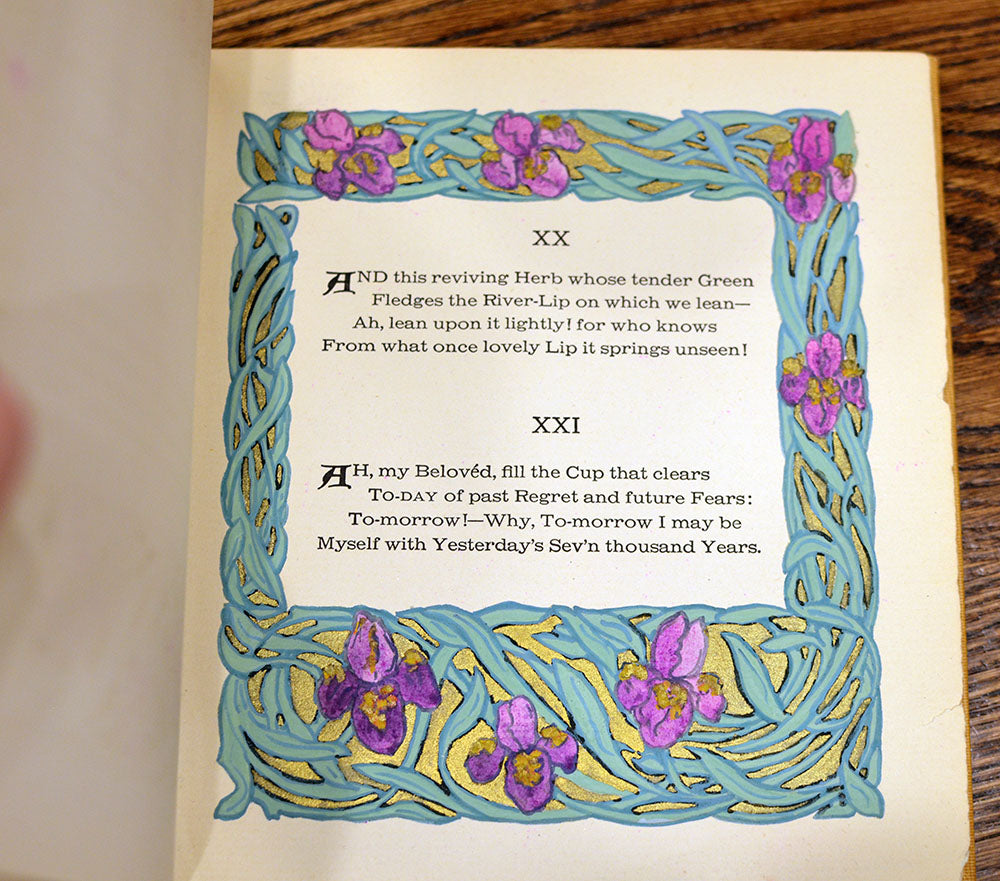 XX
AND this reviving Herb whose tender Green
Fledges the River-Lip on which we lean—
Ah, lean upon it lightly! for who knows
From what once lovely Lip it springs unseen!
XXI
AH, my Belovéd, fill the Cup that clears
TO-DAY of past Regret and future Fears:
To-morrow!—Why, To-morrow I may be
Myself with Yesterday's Sev'n thousand Years.